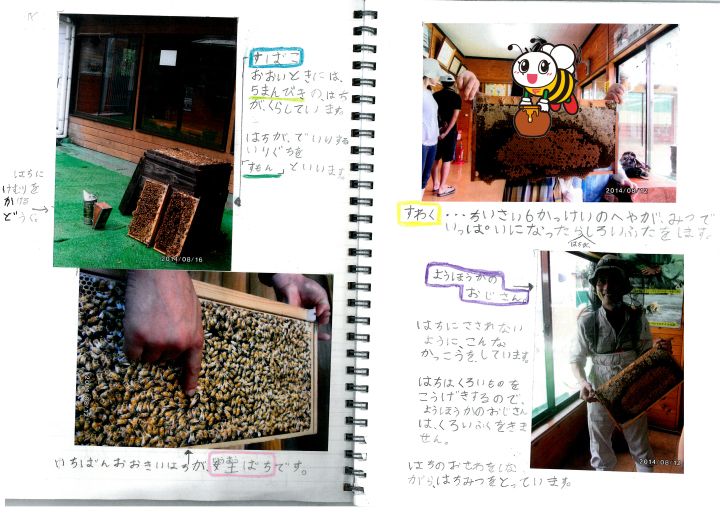 すばこ
おおいときには、
5まんびきの、はち
が、くらしています。
はちが、でいりする
いりぐちを
「すもん」といいます。
はちに
けむりを
かける
どうぐ。
2014/08/16
いちばんおおきいはちが、女王ばちです。
2014/08/12
すわく ・・・ちいさい6かっけいのへやが、みつで
いっぱいになったらしろいふたをします。
はちが、
ようほうかの
おじさん。
はちにさされない
ように、こんな
かっこうを、しています。
はちはくろいものを
こうげきするので、
ようほうかのおじさん
は、くろいふくをきま
せん。
はちのおせわをしな
がら、はちみつをとっています。
2014/08/12